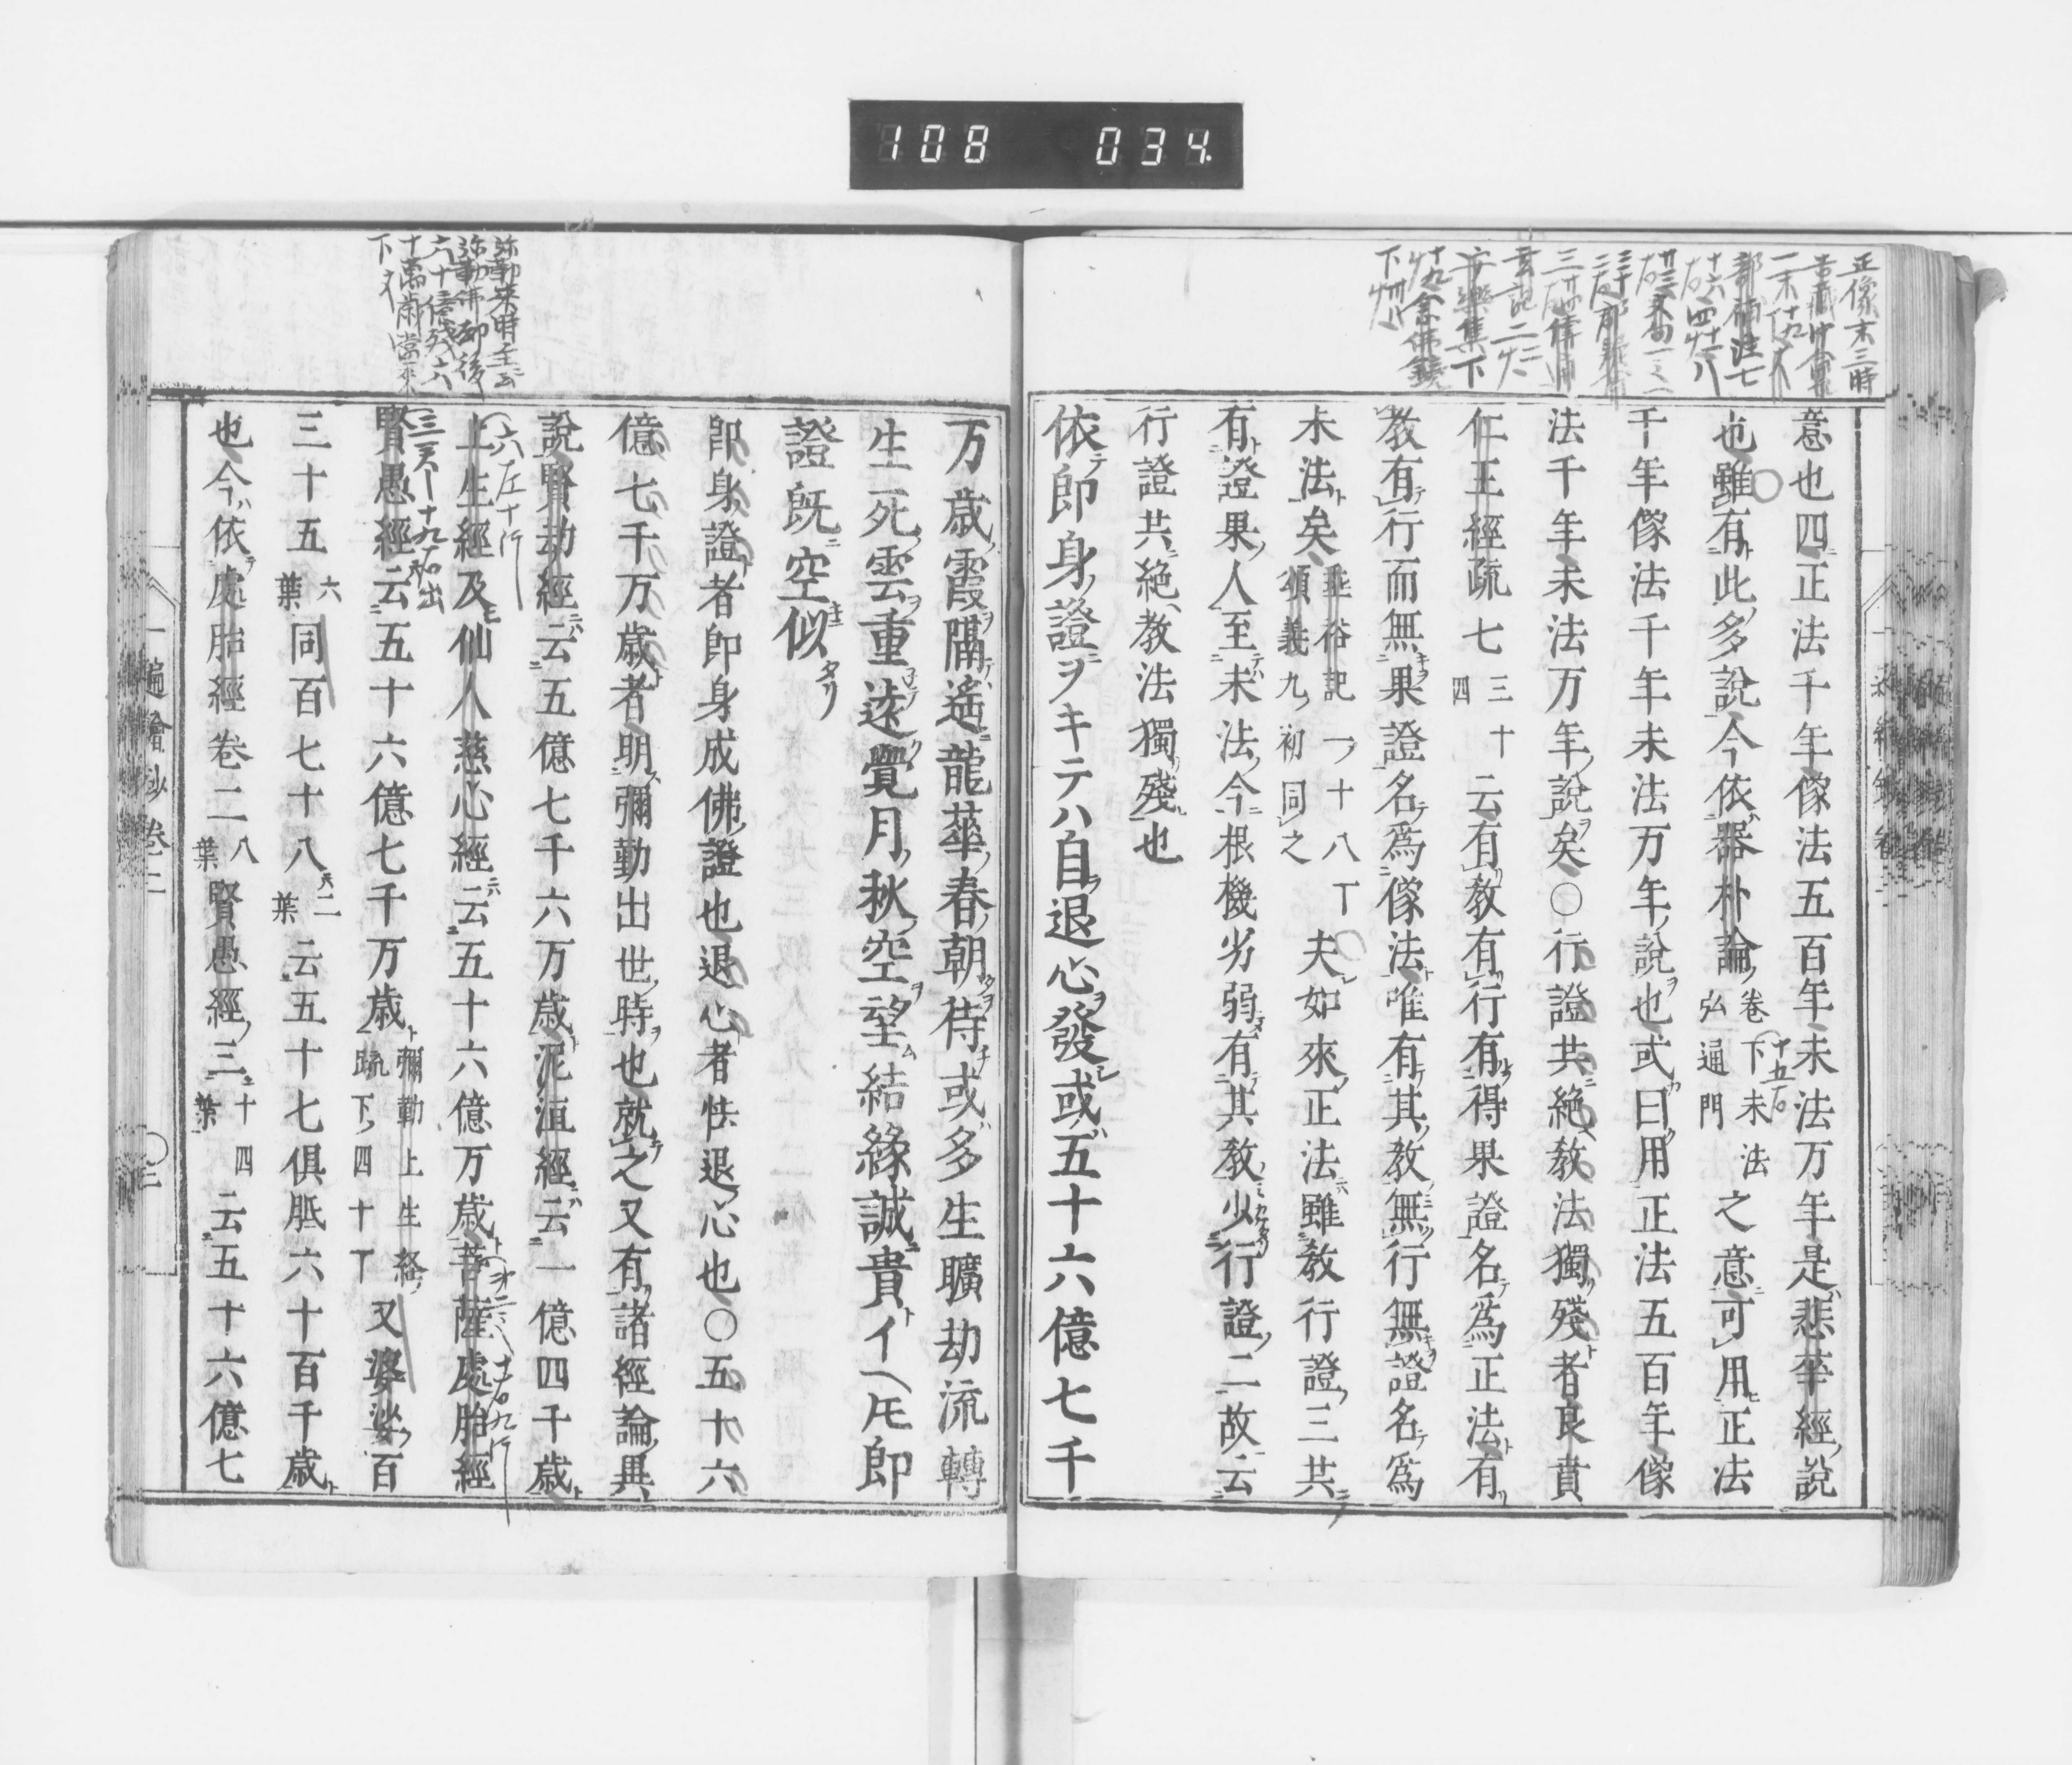 108 034.
正像末三時
意也四正法千年像法五百年末法万年是悲華經説
也雖有此多説今依器朴論卷下末法弘通門之意可用正法
千年像法千年末法万年説也或曰用正法五百年像
法千年末法万年説矣○行證共絶教法獨殘者良賁
仁王經疏七三十四云有教有行有得果證名為正法有
教有行而無果證名為像法唯有其教無行無證名為
末法矣垂裕記一十八丁頌義九初同之夫如來正法雖教行證三共
有證果人至末法今根機劣弱有其教少行證二故云
行證共絶教法獨殘也
依即身證ヲキテハ自退心發或五十六億七千
万歳霞隔遙龍華春朝待或多生曠劫流轉
生死雲重迷覺月秋空望結縁誠貴イヘ𪜈即
證既空似タリ
即身證者即身成佛證也退心者怯退心也○五十六
億七千万歳者明彌勒出世時也就之又有諸經論異
説賢劫經云五億七千六万歳泥洹經云一億四千歳
上生經及仙人慈心經云五十六億万歳菩薩處胎經
賢愚經云五十六億七千万歳彌勒上生經疏下四十丁又婆娑百
三十五六葉同百七十八二葉云五十七俱胝六十百千歳
也今依處胎經卷二八葉賢愚經三十四葉云五十六億七
一遍繪抄卷二
○三